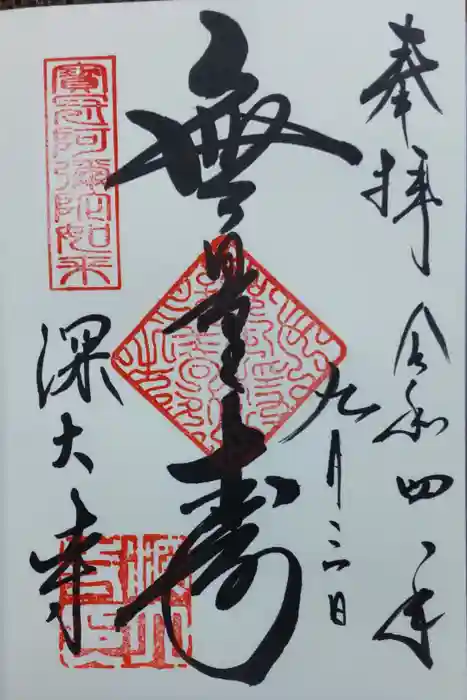 奉拝
令和四年
九月三日
無量寿
寶冠阿彌陀如来
深大寺